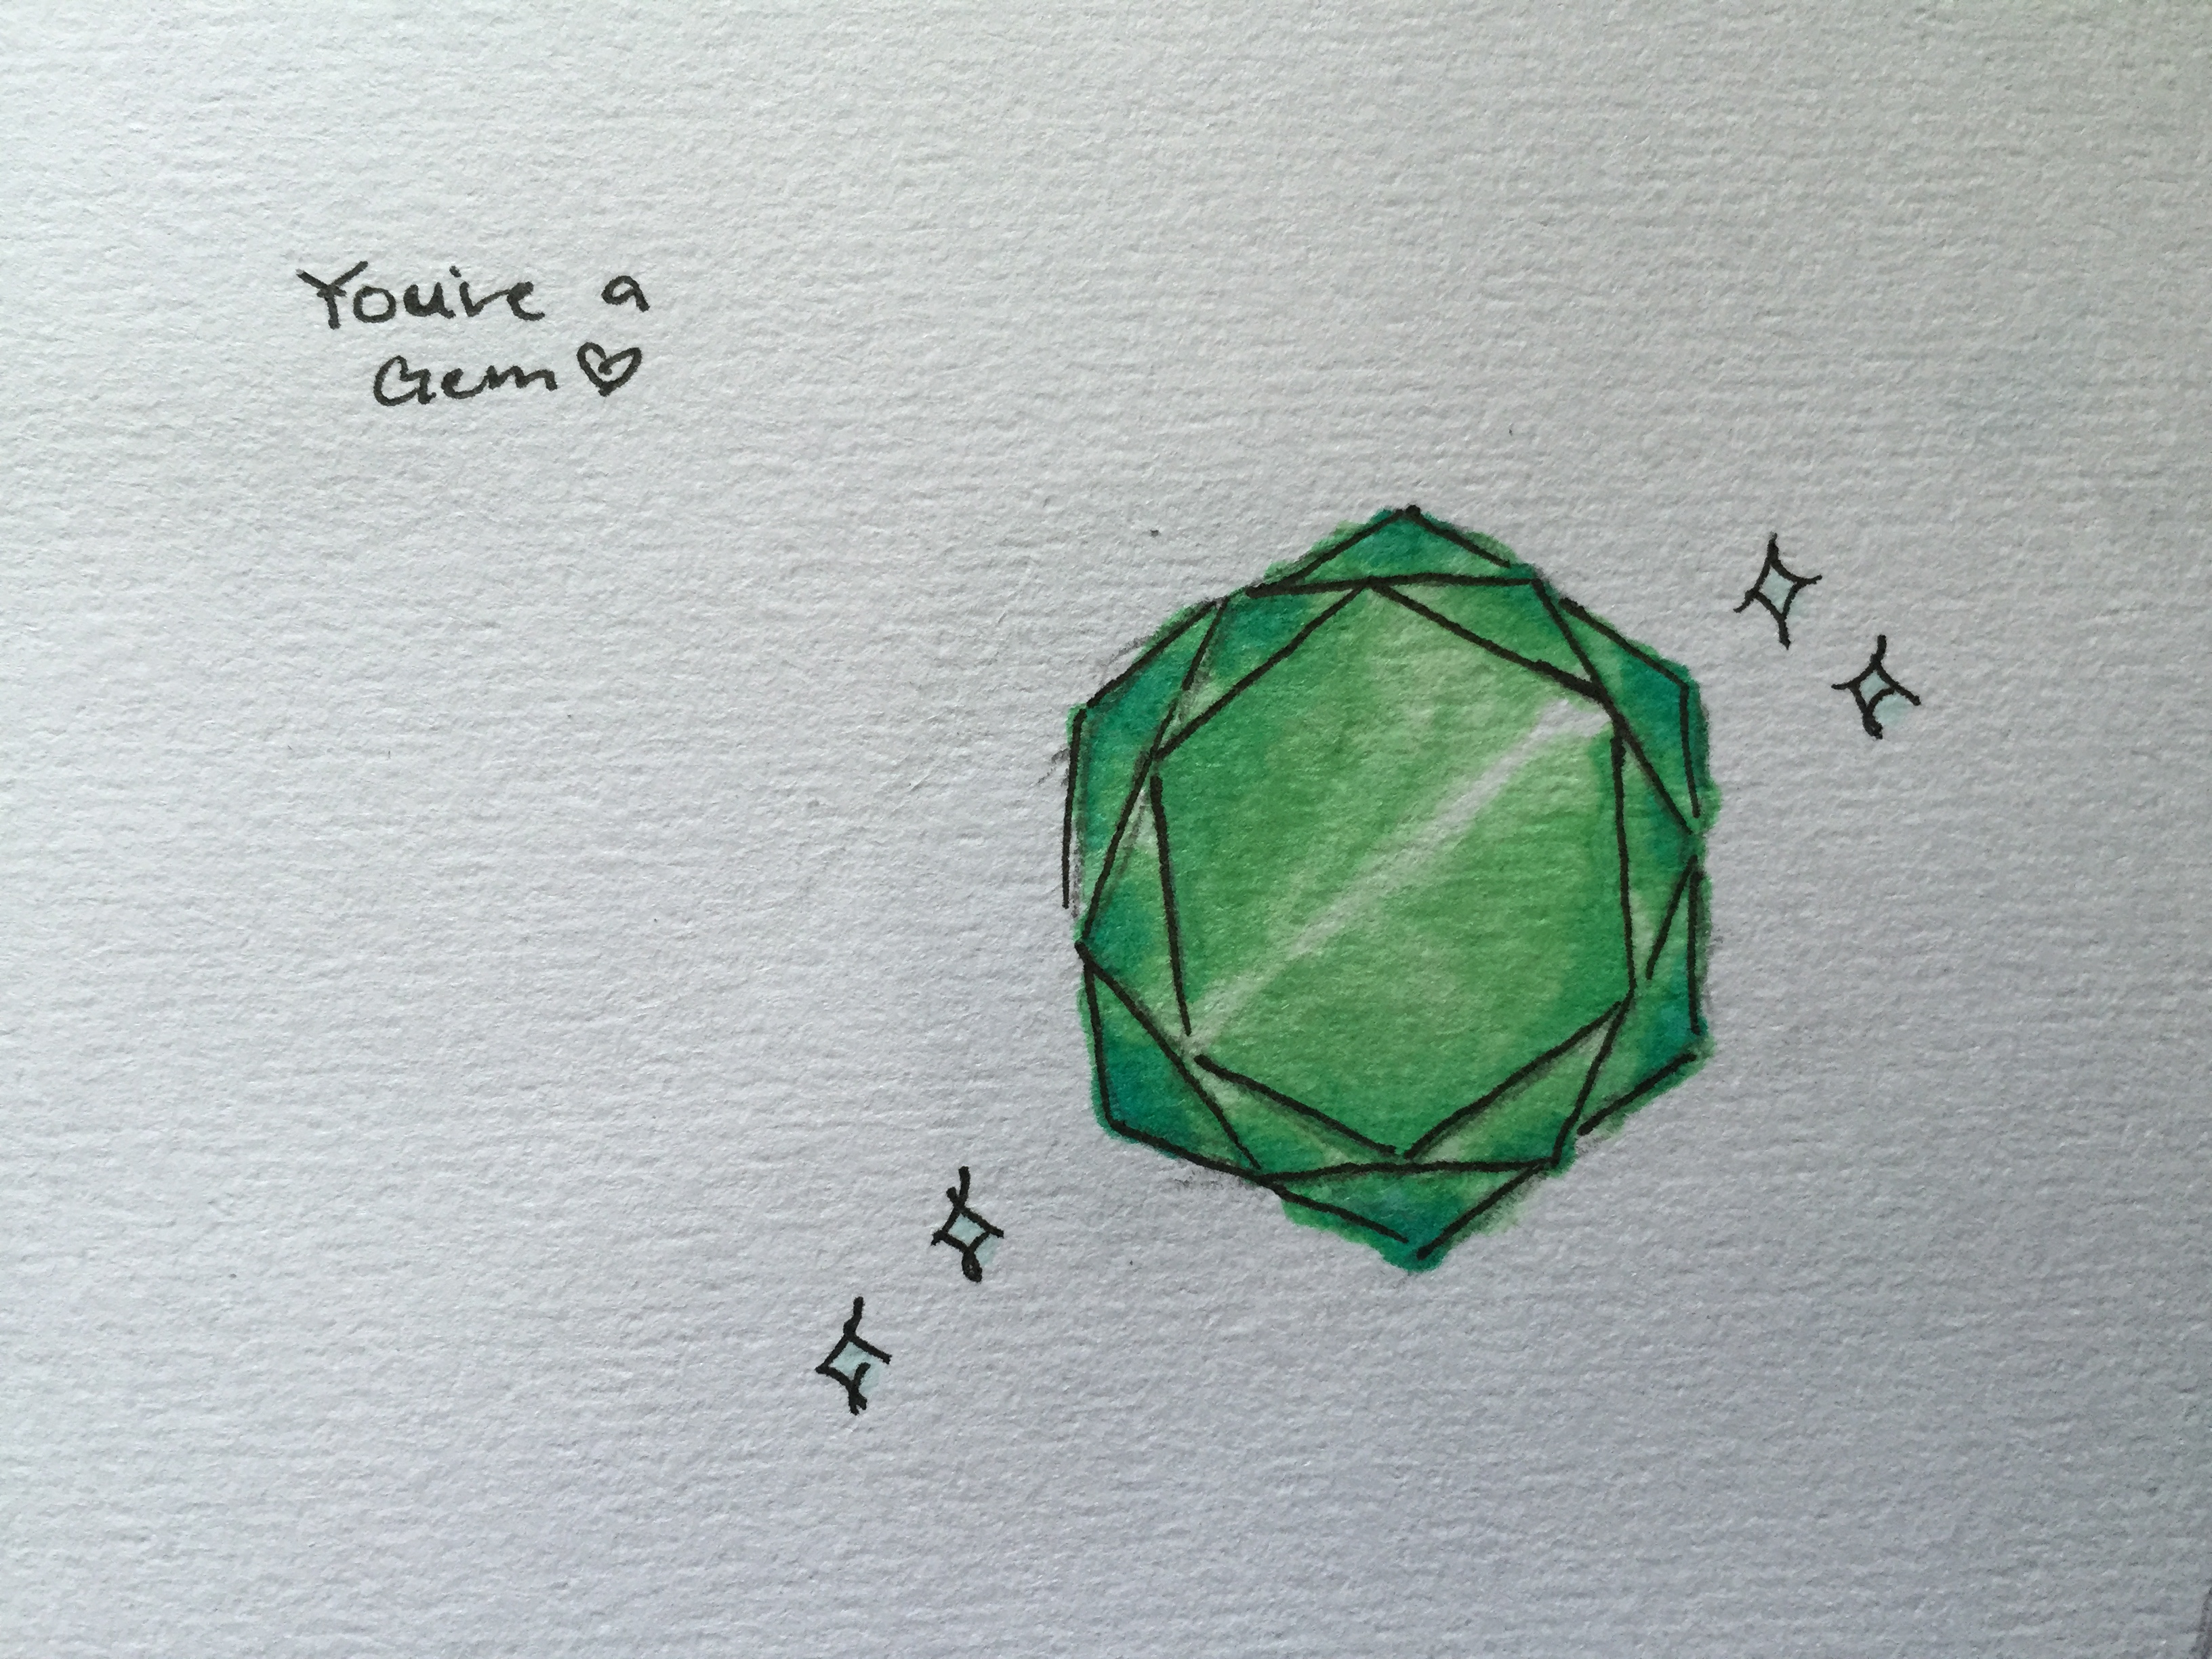 You're a
Gem ♡